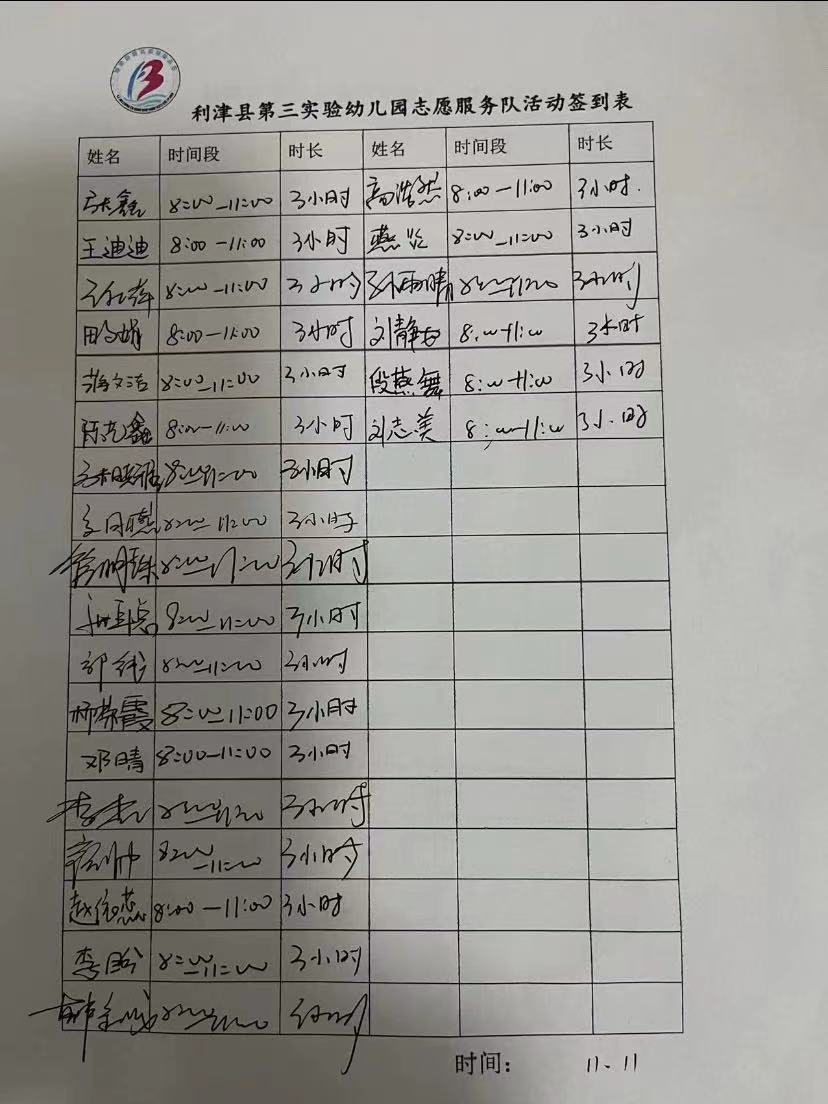 利津县第三实验幼儿园志愿服务队活动签到表
姓名 时间段 时长 姓名 时间段 时长
张鑫 8:00-11:00 3小时 高浩然 8:00-11:00 3小时.
王迪迪 8:00-11:00 3小时 燕 8:00-11:00 3小时
8:00-11:00 3小时 孙雨晴 8:00-11:00 3小时
8:00-11:00 3小时 刘静 8:00-11:00 3小时
蒋文洁 8:00-11:00 3小时 段燕舞 8:00-11:00 3小时
陈 鑫 8:00-11:00 3小时 刘志美 8:00-11:00 3小时
8:00-11:00 3小时
8:00-11:00 3小时
8:00-11:00 3小时
8:00-11:00 3小时
8:00-11:00 3小时
杨 霞 8:00-11:00 3小时
邓晴 8:00-11:00 3小时
李杰 8:00-11:00 3小时
8:00-11:00 3小时
赵 燕 8:00-11:00 3小时
李 8:00-11:00 3小时
韩 8:00-11:00 3小时
时间: 11.11